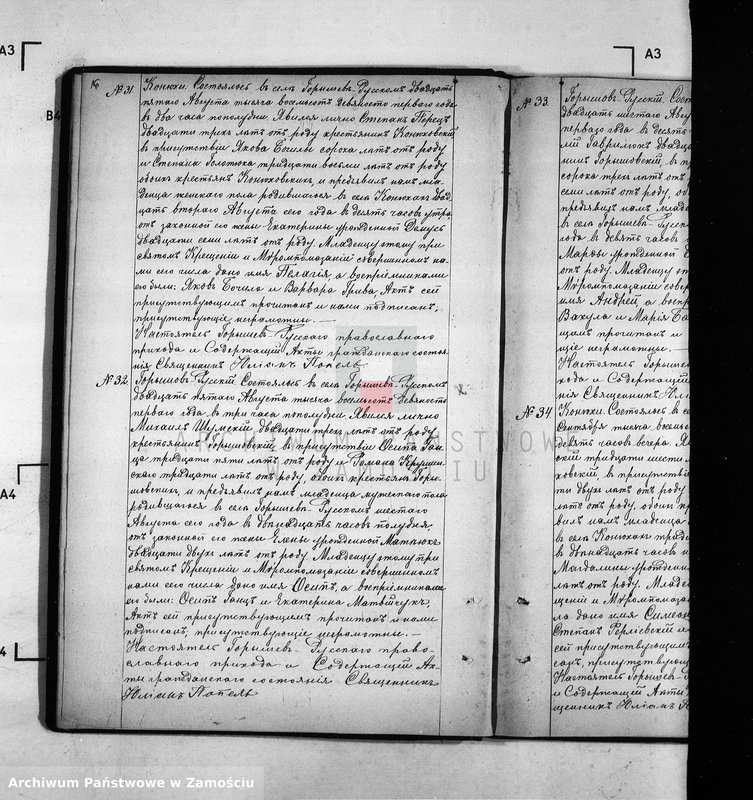 A3
A3
B4
A4
4
№ 31.
Конюхи. Состоялось въ селѣ Горышовѣ-Русскомъ двадцать
пятаго Августа тысяча восемьсотъ девяносто перваго года
въ два часа пополудни. Явился лично Степанъ
двадцати трехъ лѣтъ отъ роду крестьянинъ Конюховскій
въ присутствіи Якова сорока лѣтъ отъ роду
и Степана тридцати восьми лѣтъ отъ роду
обоихъ крестьянъ Конюховскихъ, и предъявилъ намъ мла-
денца женскаго пола родившагося въ селѣ Конюхахъ двад-
цать втораго Августа сего года въ десять часовъ утра,
отъ законной его жены Екатерины урожденной
двадцати семи лѣтъ отъ роду. Младенцу этому при
святомъ Крещеніи и Мѵропомазаніи совершенномъ на-
ми сего числа дано имя Пелагія, а воспріемниками
его были: Яковъ и Варвара Грива, Актъ сей
присутствующимъ прочитанъ и нами подписанъ,
присутствующіе неграмотны. —
Настоятель Горышев-Русскаго православнаго
прихода и Содержащій Акты гражданскаго состоя-
нія Священникъ Юліанъ Попель
№ 32.
Горышовъ-Русскій. Состоялось въ селѣ Горышовѣ-Русскомъ
двадцать пятаго Августа тысяча восемьсотъ девяносто
перваго года, въ три часа пополудни. Явился лично
Михаилъ Шумскій двадцати трехъ лѣтъ отъ роду
крестьянинъ Горышовскій въ присутствіи Осипа Ган-
ца тридцати пяти лѣтъ отъ роду и Романа
скаго тридцати лѣтъ отъ роду, обоихъ крестьянъ Горы-
шовскихъ, и предъявилъ намъ младенца мужескаго пола
родившагося въ селѣ Горышовѣ-Русскомъ шестаго
Августа сего года въ двѣнадцать часовъ полудня,
отъ законной его жены Елены урожденной
двадцати двухъ лѣтъ отъ роду. Младенцу этому при
святомъ Крещеніи и Мѵропомазаніи совершенномъ
нами сего числа дано имя Осипъ, а воспріемниками
его были: Осипъ Ганцъ и Екатерина Матвійчукъ,
Актъ сей присутствующимъ прочитанъ и нами
подписанъ, присутствующіе неграмотны. —
Настоятель Горышев-Русскаго право-
славнаго прихода и Содержащій Ак-
ты гражданскаго состоянія Священникъ
Юліанъ Попель
№ 33.
Горышовъ-Русскій. Сост
двадцать шестаго Авгу
перваго года въ десято
ми Гавриломъ двадцат
нинъ Горышовскій, въ пр
сорока трехъ лѣтъ отъ
семи лѣтъ отъ роду об
предъявилъ намъ младе
въ селѣ Горышовѣ-Русско
года въ девять часовъ
Марѳы урожденной
отъ роду. Младенцу эт
Мѵропомазаніи совер
имя Андрей, а воспр
Вакула и Марія Ба
щимъ прочитанъ и
щіе неграмотны. —
Настоятель Горышев
хода и Содержащій
нія Священникъ Юлі
№ 34.
Конюхи. Состоялось въ с
Сентября тысяча восемь
девять часовъ вечера. Яв
скій тридцати шести л
ховскій, въ присутствіи
ти двухъ лѣтъ отъ роду
лѣтъ отъ роду, обоихъ кр
вилъ намъ младенца
въ селѣ Конюхахъ тридц
въ двѣнадцать часовъ н
Магдалины урожденн
лѣтъ отъ роду. Младе
щеніи и Мѵропомаза
ла дано имя Симеон
Степанъ и
сей присутствующимъ
санъ, присутствующ
Настоятель Горышев-Р
и Содержащій Акты г
щенникъ Юліанъ П
ARCHIWUM PAŃSTWOWE
W ZAMOŚCIU
Archiwum Państwowe w Zamościu